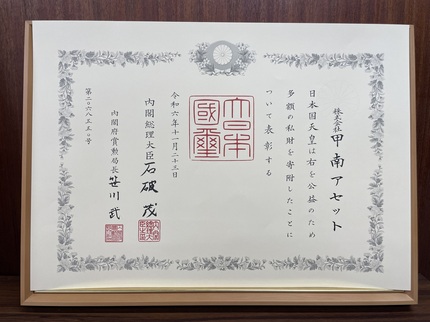 株式会社 甲南アセット
日本国天皇は右を公益のため
多額の私財を寄附したことに
ついて表彰する
大日本
國璽
令和六年十一月二十三日
内閣総理大臣 石破茂
内閣府賞勲局長 笹川武